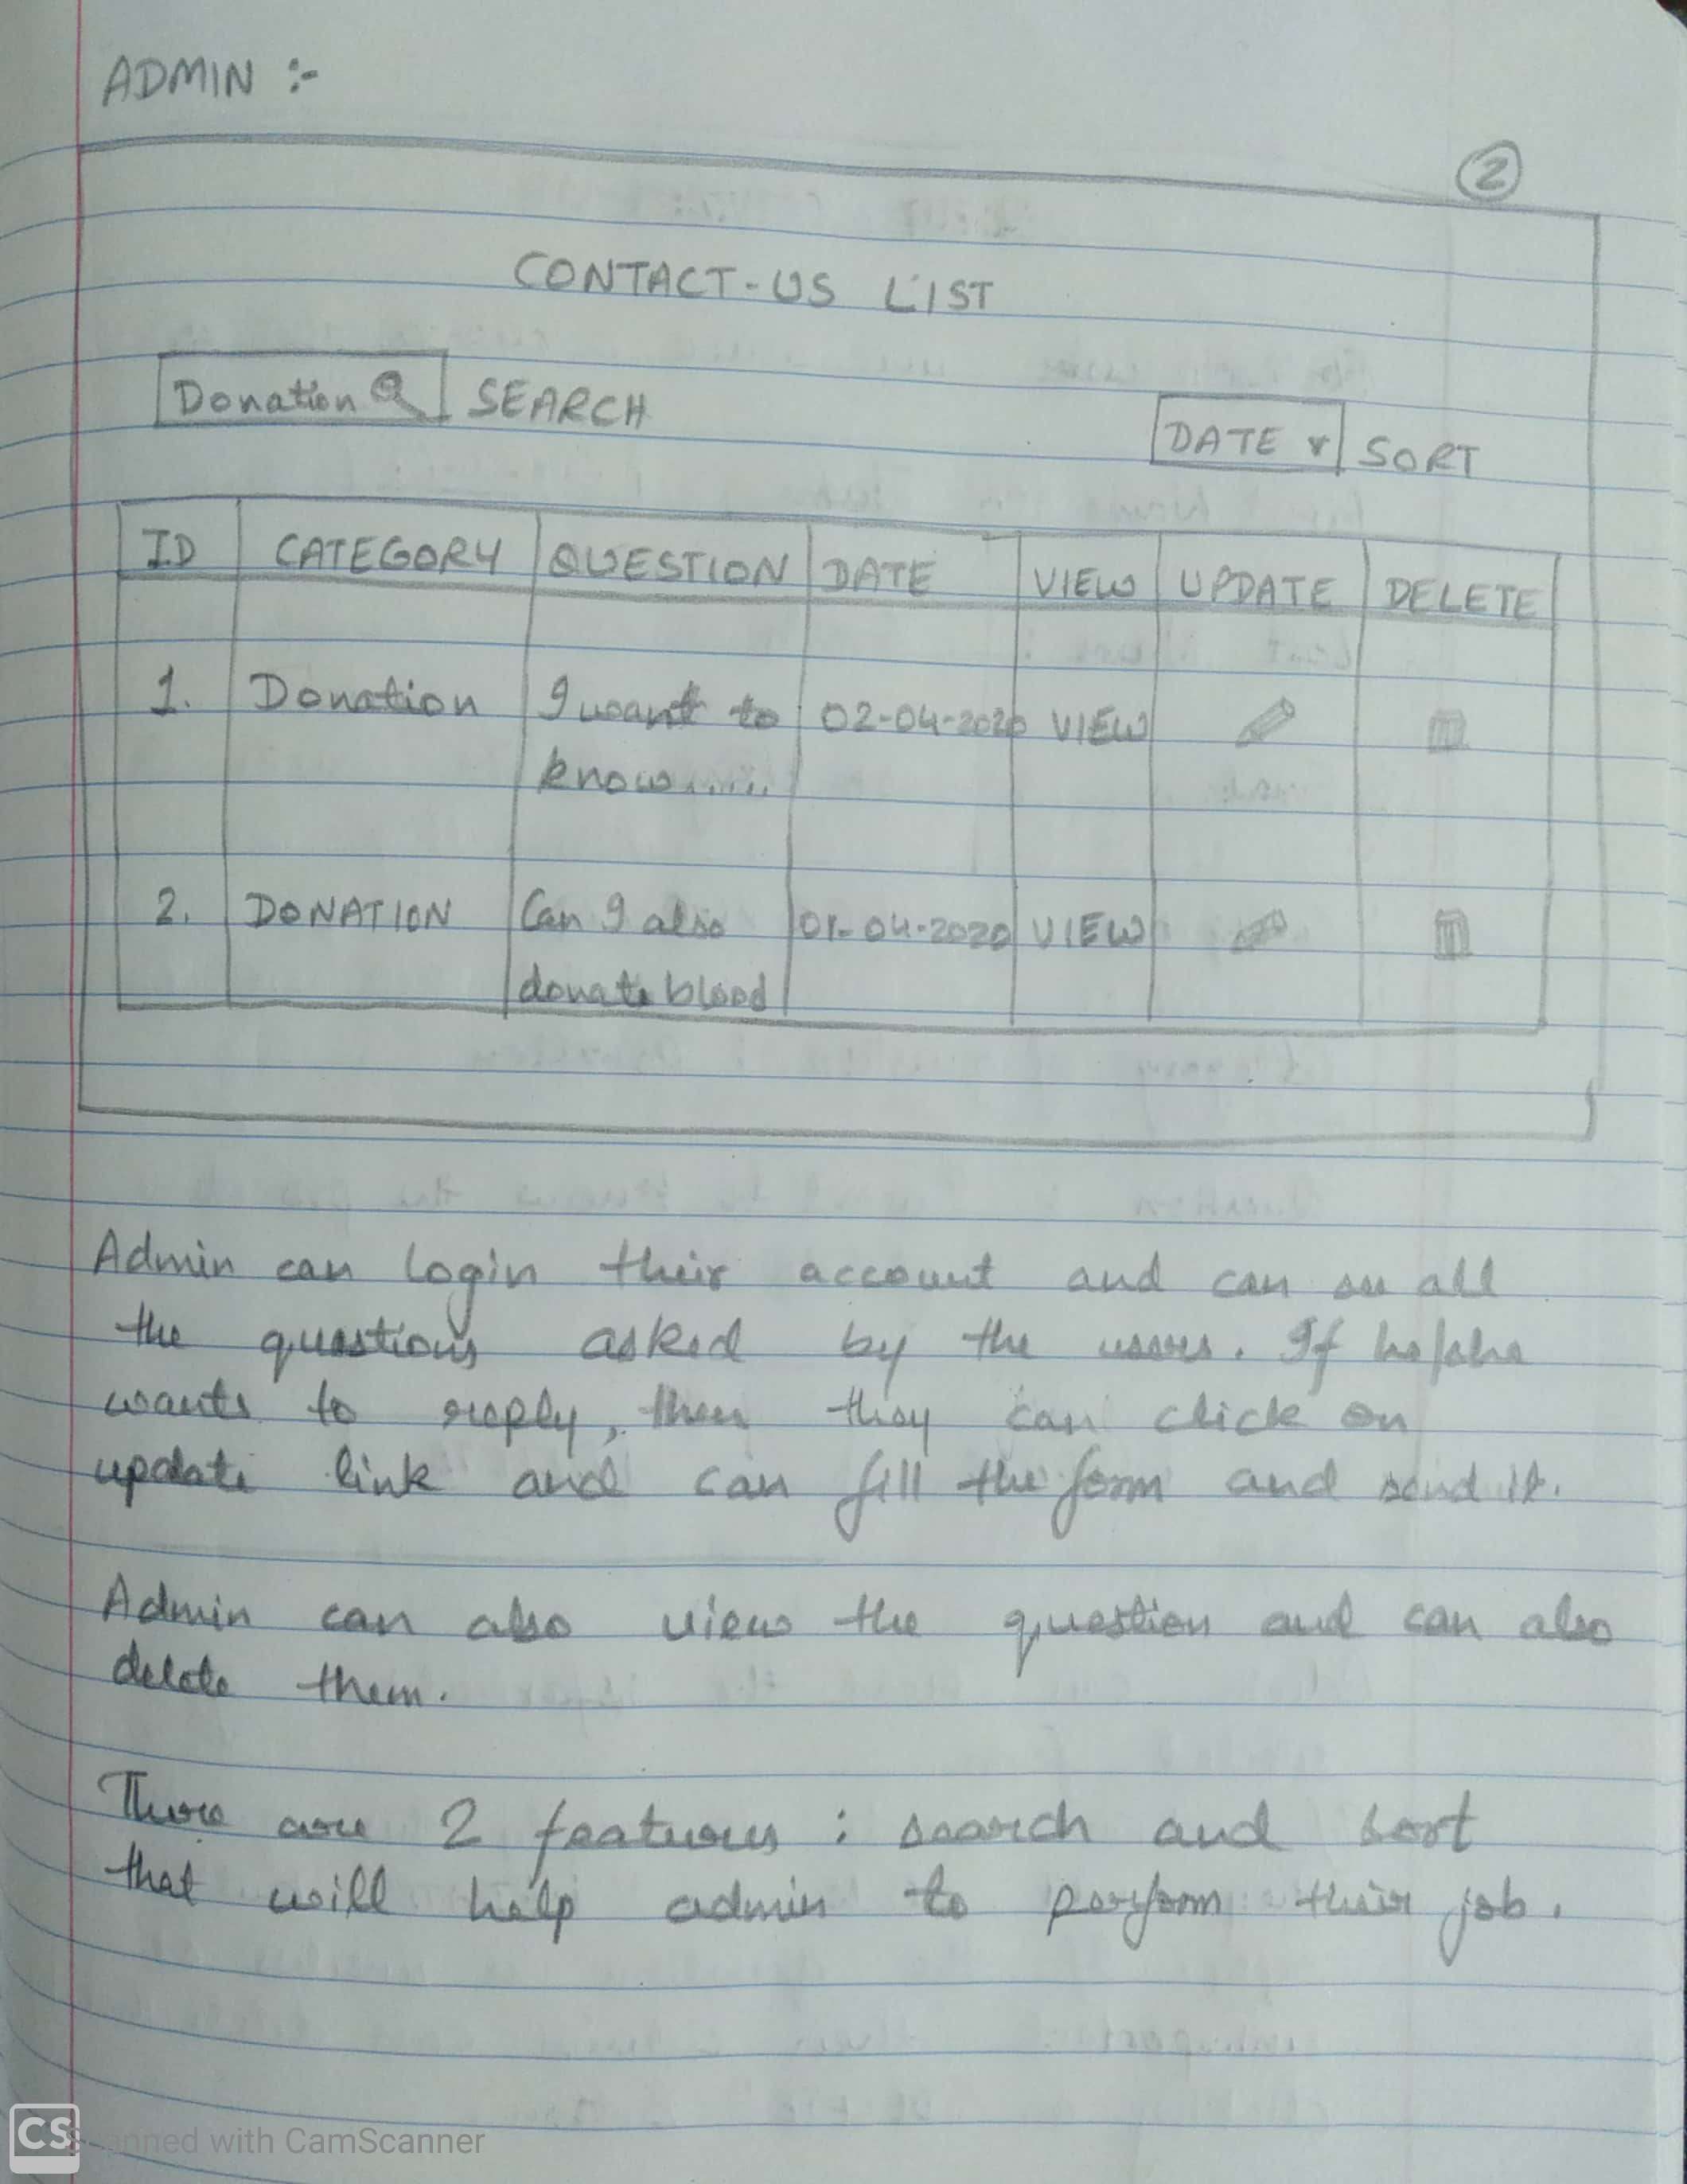 ADMIN :-
2
CONTACT-US LIST
Donation SEARCH
DATE SORT
ID CATEGORY QUESTION DATE VIEW UPDATE DELETE
1. Donation I want to 02-04-2020 VIEW
know......
2. DONATION Can I also 01-04-2020 VIEW
donate blood
Admin can login their account and can see all
the questions asked by the users. If he/she
wants to reply, then they can click on
update link and can fill the form and send it.
Admin can also view the question and can also
delete them.
There are 2 features : search and sort
that will help admin to perform their job.
CS
Scanned with CamScanner